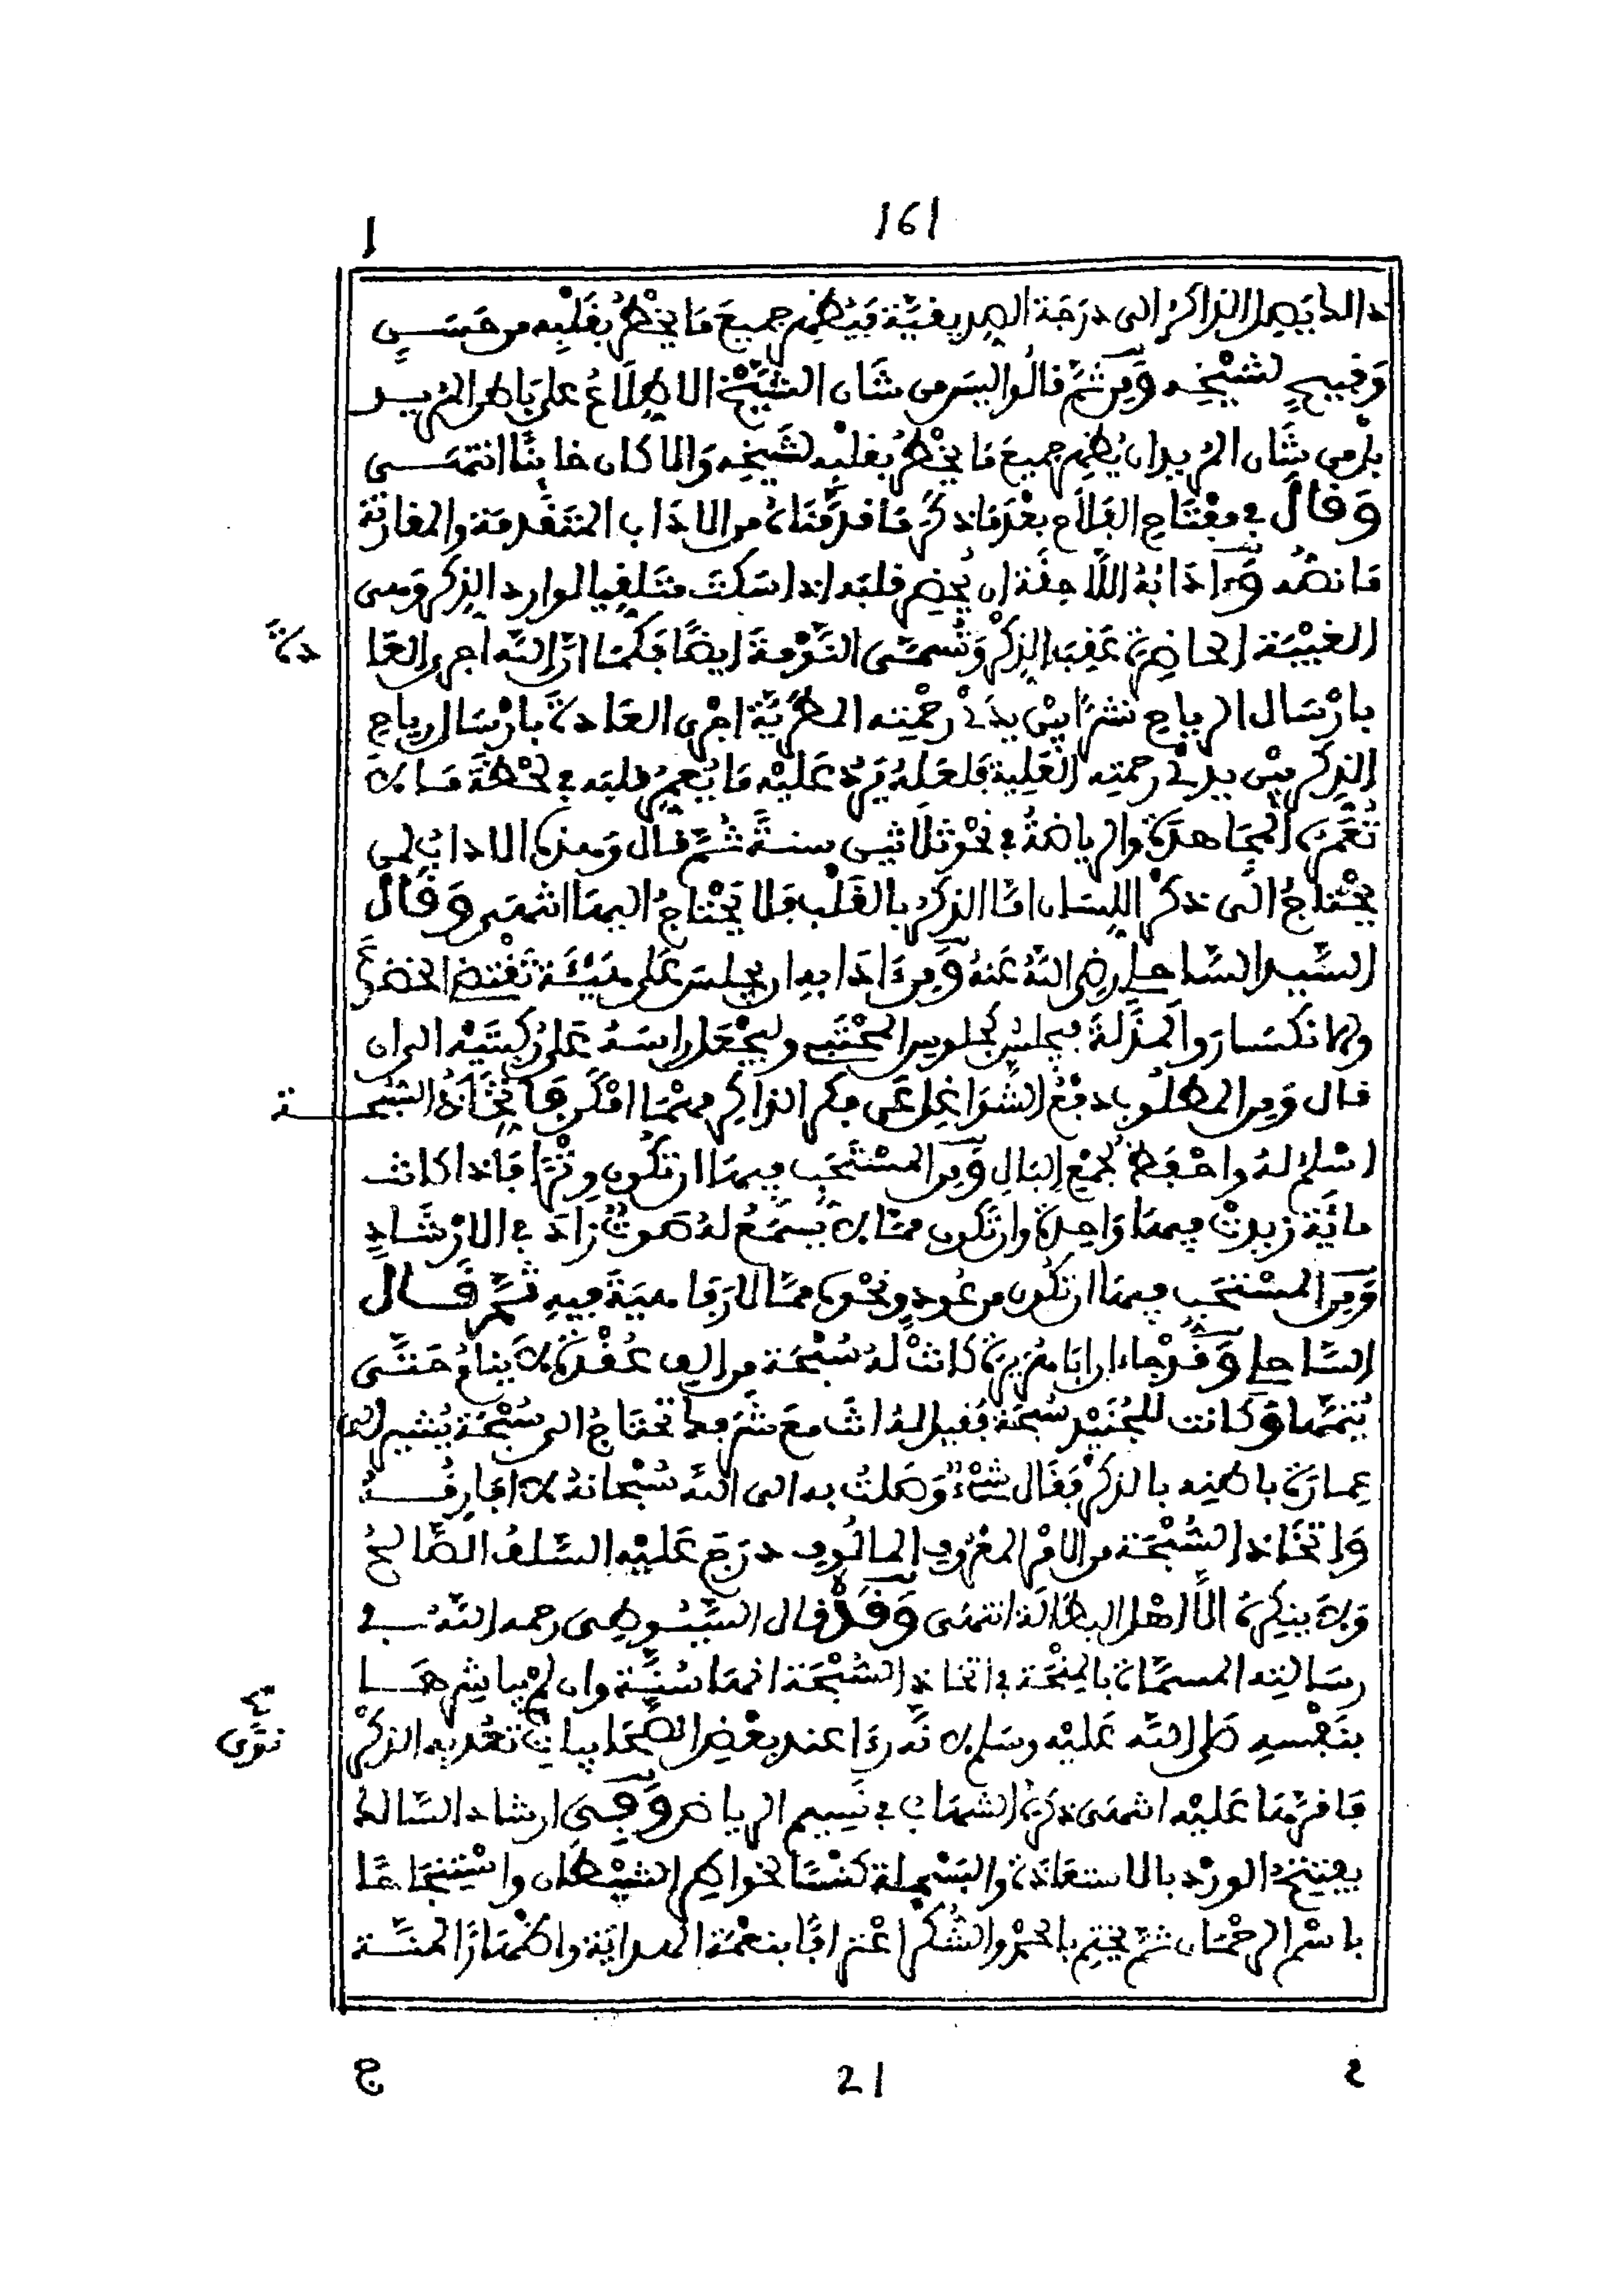 161
ا
ذالك يصل الذاكر الى درجة الصديقية فيظهر جميع ما يخطر بقلبه من حسن
وقبيح لشيخه ومن ثم قالوا ليس من شان الشيخ الاطلاع على باطن المريد
بل من شان المريد ان يظهر جميع ما يخطر بقلبه لشيخه والا كان خائنا انتهى
وقال في مفتاح الفلاح بعد ما ذكر ما قدمناه من الاداب المتقدمة والمقارنة
ما نصه ومن ادابه اللاحقة ان يحضر قلبه اذا سكت متلقيا لوارد الذكر وهى
الغيبة الحاضرة عقب الذكر وتسمى النومة ايضا فكما ان الله اجرى العا
دة
بارسال الرياح نشرا بين يدي رحمته المطرية اجرى العادة بارسال رياح
الذكر بين يدي رحمته العلية فلعله يرد عليه ما يعمر قلبه في لحظة ما لا
تعمره المجاهدة والرياضة في نحو ثلاثين سنة ثم قال وهذه الاداب لمن
يحتاج الى ذكر اللسان اما الذكر بالقلب فلا يحتاج اليها انتهى وقال
السيد الساحلي رضي الله عنه ومن ءادابه ان يجلس على هيئة تقتضي الخضوع
والانكسار والمذلة فيجلس كجلوس المحتبي وليجعل راسه على ركبتيه الى ان
قال ومن المطلوب دفع الشواغل عن فكر الذاكر مهما امكن فاتخاذ السبحة
اسلم له واحفظ لجمع البال ومن المستحب فيها ان تكون وترا فاذا كانت
مائة زيدت فيها واحدة وان تكون مما لا يسمع له صوت زائد في الارشاد
ومن المستحب فيها ان تكون من عود ونحوه مما لا رفاهية فيه ثم قال
الساحلي وقد جاء ان ابا هريرة كانت له سبحة من الف عقدة لا ينام حتى
يتمها وكانت للجنيد سبحة فقيل له انت مع شرفك تحتاج الى سبحة يشير الى
عمارة باطنه بالذكر فقال شيء وصلت به الى الله سبحانه لا افارقه
واتخاذ السبحة من الامر المعروف المالوف درج عليه السلف الصالح
ولا ينكره الا اهل البطالة انتهى وقد قال السيوطي رحمه الله في
رسالته المسماة بالمنحة في اتخاذ السبحة انها سنة وان لم يباشرها
بنفسه صلى الله عليه وسلم لانه رءا عند بعض الصحابيات تعد به الذكر
نوى
فاقرها عليه انتهى ذكره الشهاب في نسيم الرياض وفي ارشاد السالك
يفتتح الورد بالاستعاذة والبسملة كنسا لخواطر الشيطان واستنجاحا
باسم الرحمان ثم يختم بالحمد والشكر اعترافا بنعمة الهداية واظهارا لمنة
ج
21